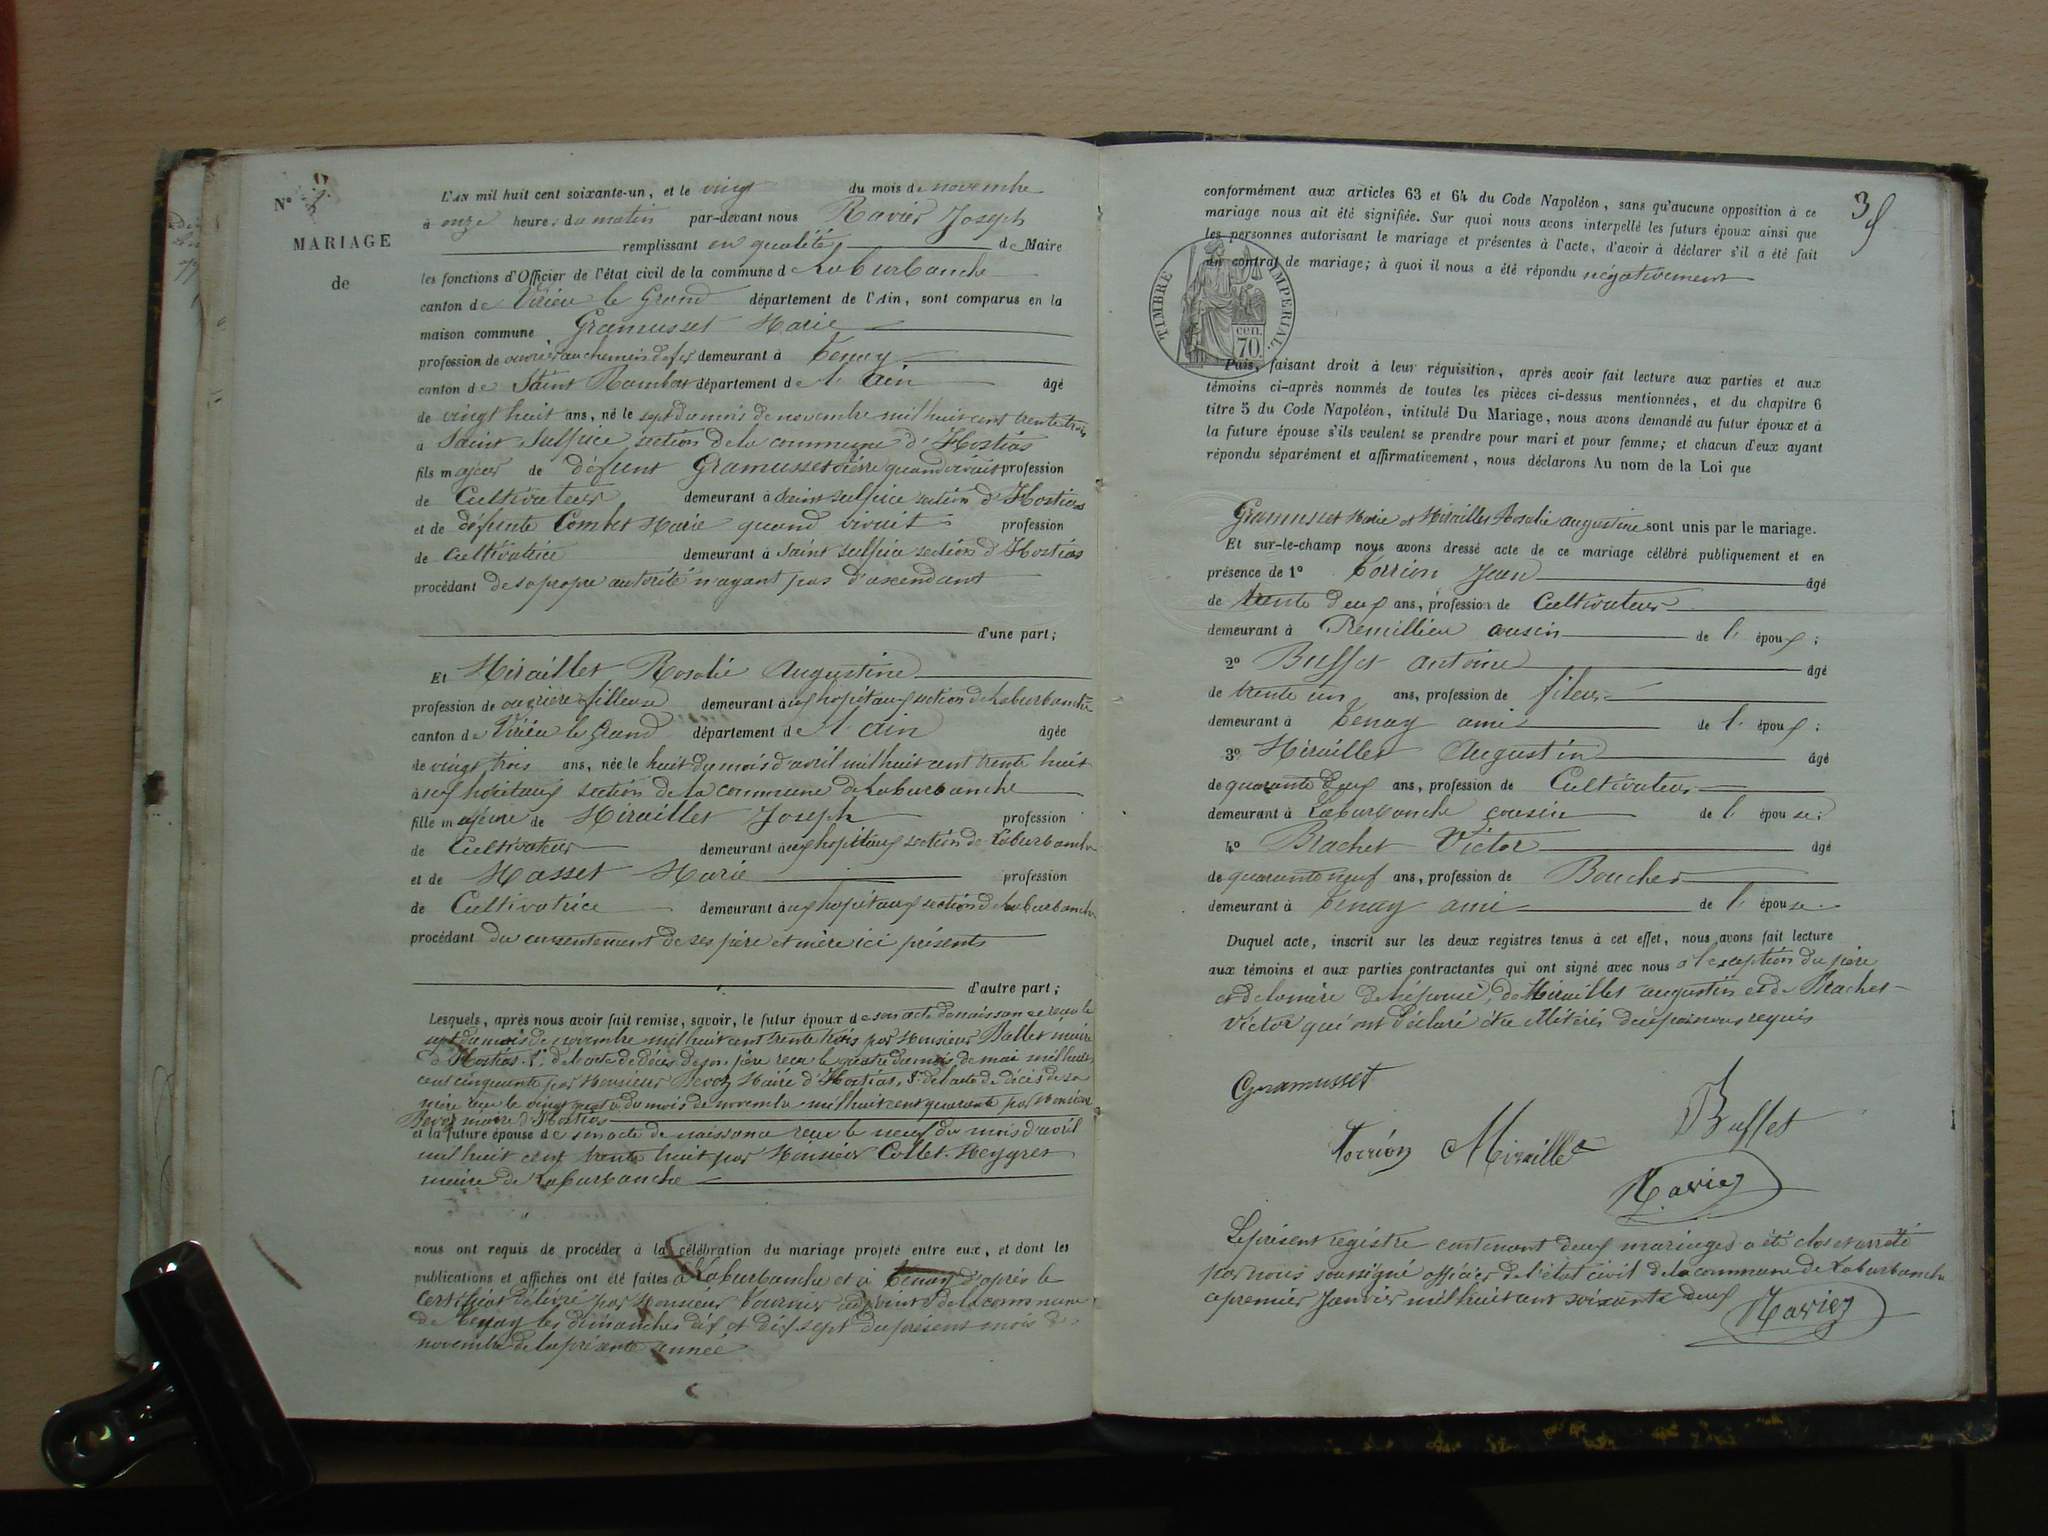 N° 2
MARIAGE
de
L'AN mil huit cent soixante-un, et le vingt du mois de novembre
à onze heures du matin par-devant nous Ravier Joseph
remplissant en qualité de Maire
les fonctions d'Officier de l'état civil de la commune de Laburbanche
canton de Virieu le Grand département de l'Ain, sont comparus en la
maison commune Gramusset Marie
profession de ouvrier au chemin de fer demeurant à Tenay
canton de Saint Rambert département de l'ain âgé
de vingt huit ans, né le sept du mois de novembre mil huit cent trente trois
à Saint Sulpice section de la commune d'Hostias
fils majeur de défunt Gramusset pierre quand vivait profession
de Cultivateur demeurant à Saint sulpice section d'Hostias
et de défunte Combet Marie quand vivait profession
de cultivatrice demeurant à Saint sulpice section d'Hostias
procédant de sa propre autorité n'ayant pas d'ascendant
d'une part;
Et Miraillet Rosalie Augustine
profession de ouvrière fileuse demeurant aux hopitaux section de Laburbanche
canton de Virieu le Grand département de l'ain âgée
de vingt trois ans, née le huit du mois d'avril mil huit cent trente huit
aux hopitaux section de la commune de Laburbanche
fille majeure de Miraillet Joseph profession
de Cultivateur demeurant aux hopitaux section de Laburbanche
et de Masset Marie profession
de Cultivatrice demeurant aux hopitaux section de Laburbanche
procédant du consentement de ses père et mère ici présents
d'autre part;
Lesquels, après nous avoir fait remise, savoir, le futur époux de son acte de naissance reçu le
sept du mois de novembre mil huit cent trente trois par Monsieur Ballet maire
d'Hostias. de l'acte de décès de son père reçu le quatre du mois de mai mil huit
cent cinquante par Monsieur Bevoz Maire d'Hostias, de l'acte de décès de sa
mère reçu le vingt quatre du mois de novembre mil huit cent quarante par Monsieur
Bevoz maire d'Hostias
et la future épouse de son acte de naissance reçu le neuf du mois d'avril
mil huit cent trente huit par Monsieur Collet-Meygret
maire de Laburbanche
nous ont requis de procéder à la célébration du mariage projeté entre eux, et dont les
publications et affiches ont été faites à Laburbanche et à Tenay d'après le
Certificat délivré par Monsieur Tournier adjoint de la commune
de Tenay les dimanches dix et dix sept du présent mois de
novembre de la présente année
35
conformément aux articles 63 et 64 du Code Napoléon, sans qu'aucune opposition à ce
mariage nous ait été signifiée. Sur quoi nous avons interpellé les futurs époux ainsi que
les personnes autorisant le mariage et présentes à l'acte, d'avoir à déclarer s'il a été fait
un contrat de mariage; à quoi il nous a été répondu négativement
TIMBRE IMPERIAL.
70. cen.
Puis, faisant droit à leur réquisition, après avoir fait lecture aux parties et aux
témoins ci-après nommés de toutes les pièces ci-dessus mentionnées, et du chapitre 6
titre 5 du Code Napoléon, intitulé Du Mariage, nous avons demandé au futur époux et à
la future épouse s'ils veulent se prendre pour mari et pour femme; et chacun d'eux ayant
répondu séparément et affirmativement, nous déclarons Au nom de la Loi que
Gramusset Marie et Miraillet Rosalie augustine sont unis par le mariage.
Et sur-le-champ nous avons dressé acte de ce mariage célébré publiquement et en
présence de 1° Torrion Jean âgé
de trente deux ans, profession de Cultivateur
demeurant à Premillieu cousin de l'époux;
2° Buffet antoine âgé
de trente un ans, profession de fileur
demeurant à Tenay ami de l'époux;
3° Miraillet Augustin âgé
de quarante deux ans, profession de Cultivateur
demeurant à Laburbanche cousin de l'épouse;
4° Brachet Victor âgé
de quarante neuf ans, profession de Boucher
demeurant à Tenay ami de l'épouse.
Duquel acte, inscrit sur les deux registres tenus à cet effet, nous avons fait lecture
aux témoins et aux parties contractantes qui ont signé avec nous à l'exception du père
et de la mère de l'épouse, de Miraillet augustin et de Brachet
Victor qui ont déclaré être illitérés de ce requis
Gramusset
Buffet
Torrion Miraillet
Ravier
Le présent registre contenant deux mariages a été clos et arrêté
par nous soussigné officier de l'état civil de la commune de Laburbanche
ce premier Janvier mil huit cent soixante deux
Ravier